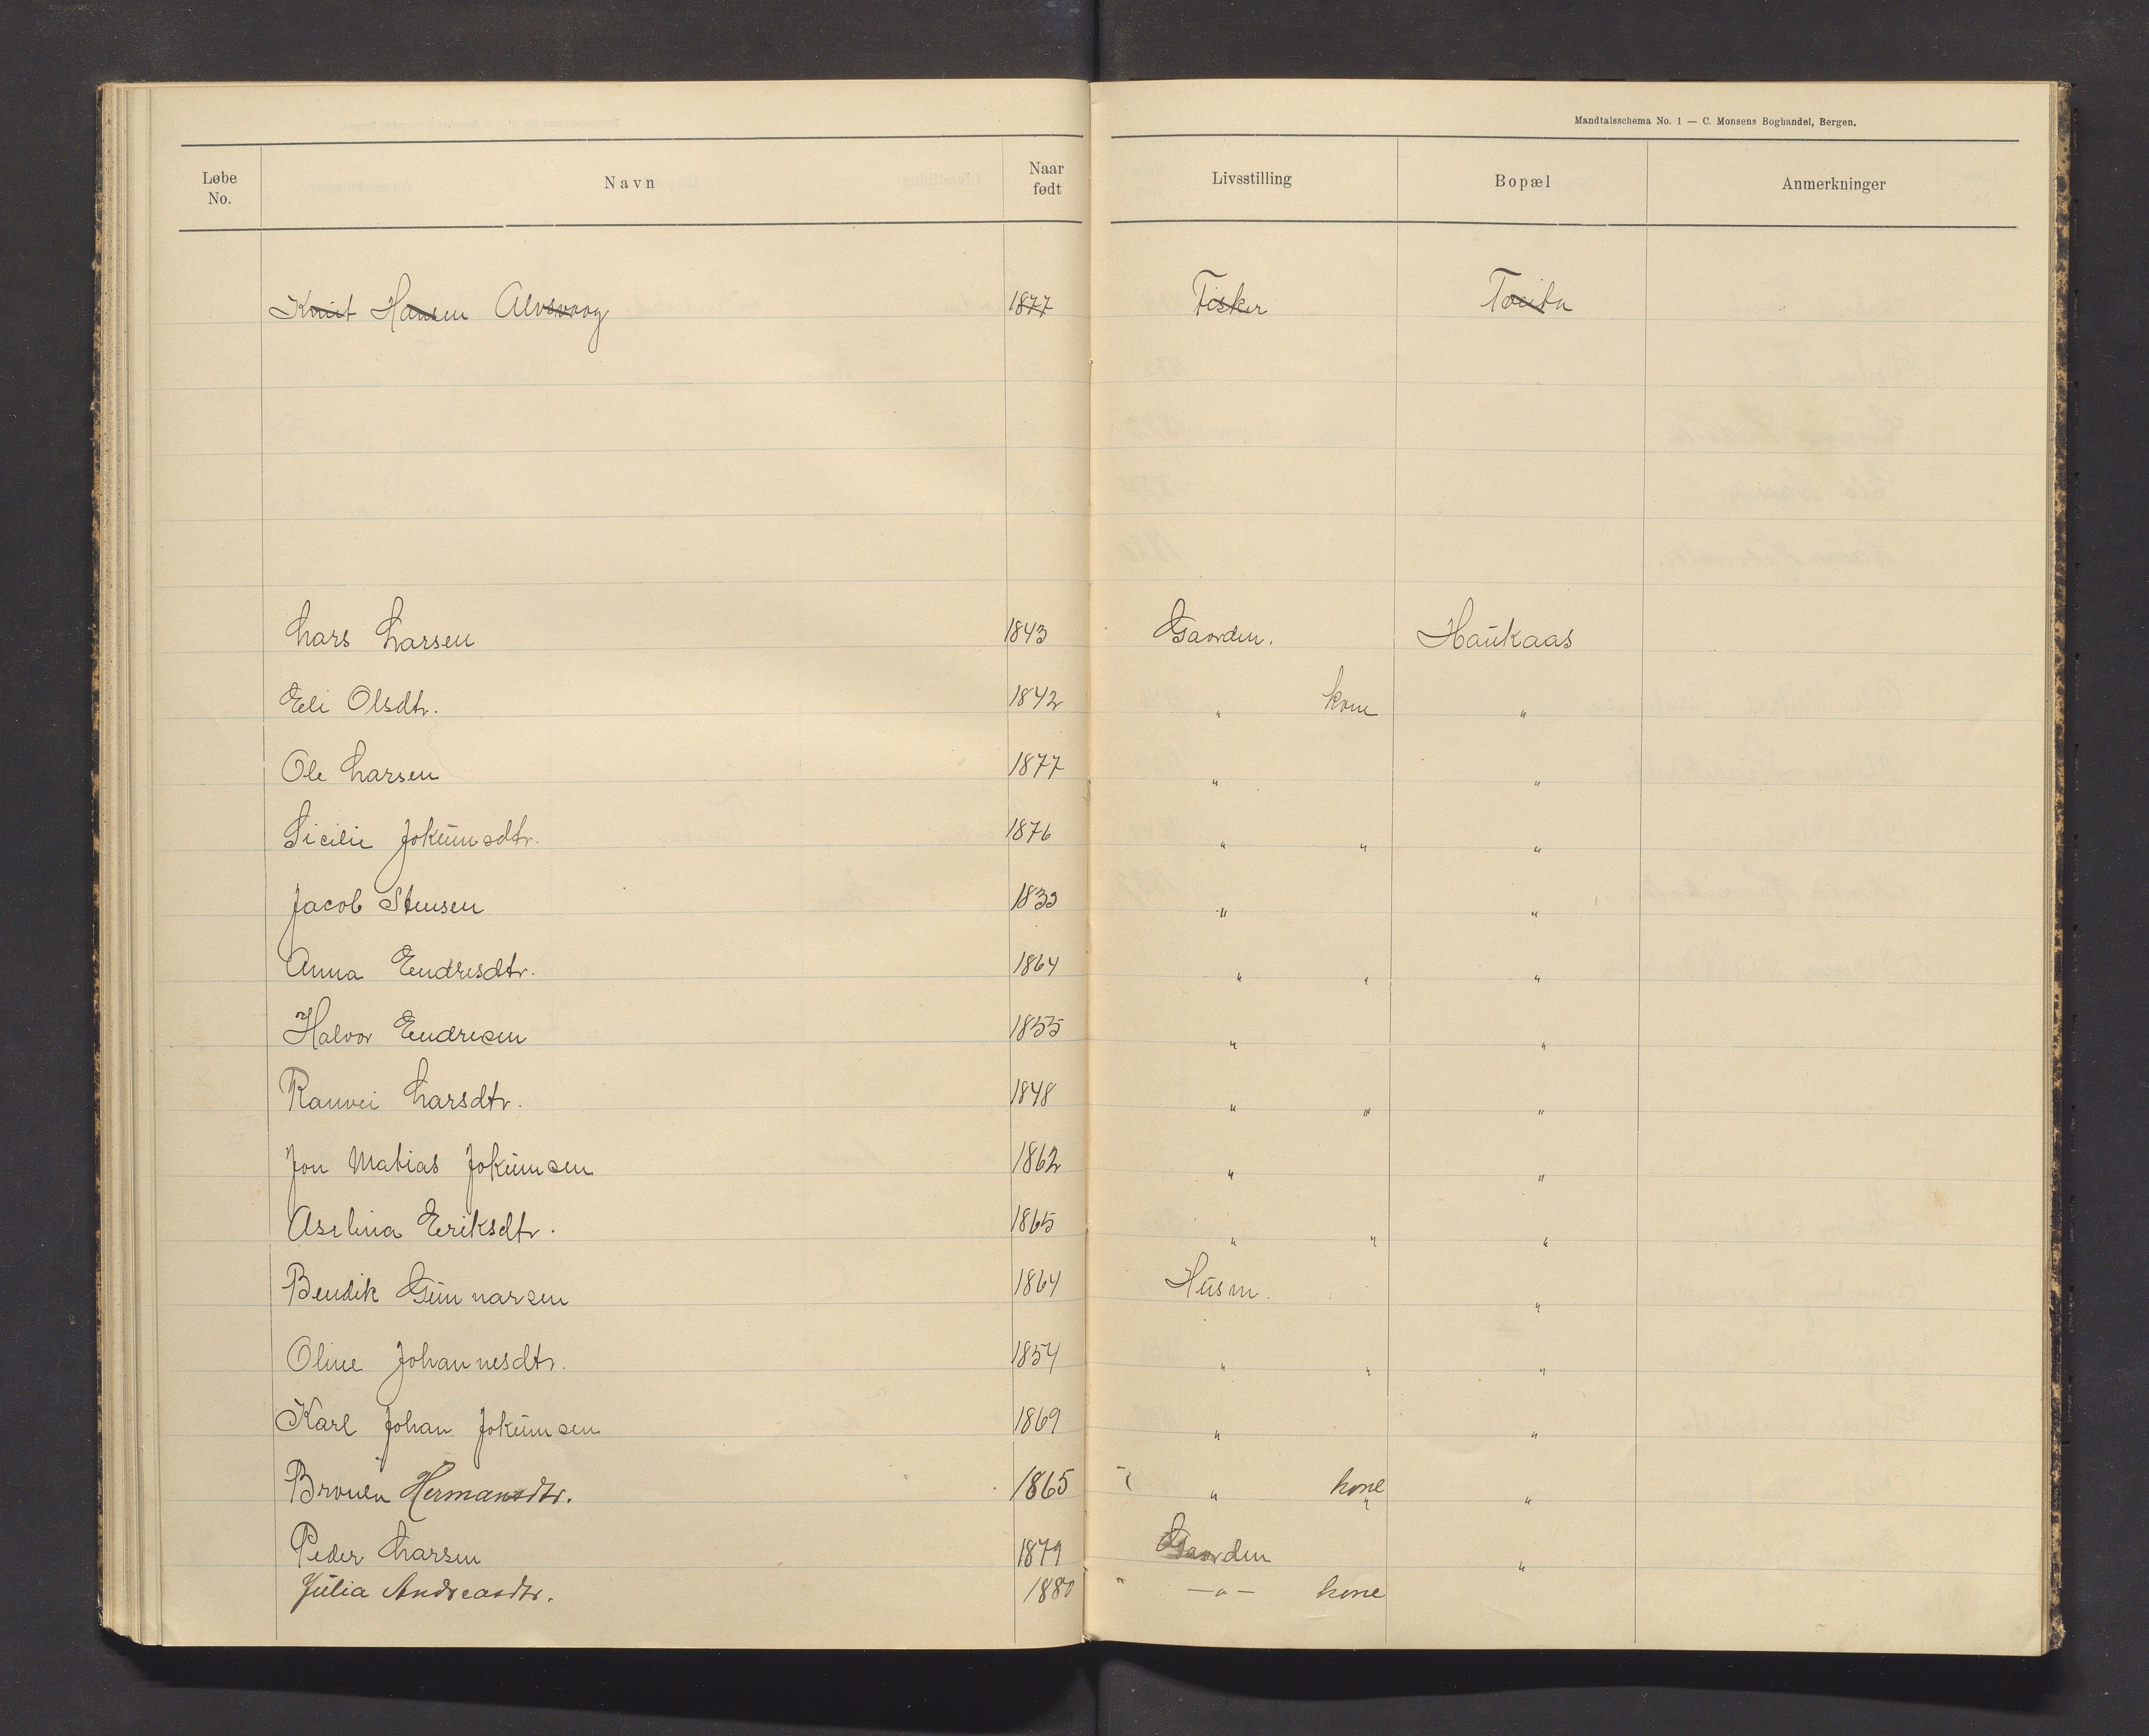 Mandtalsschema No. 1 — C. Monsens Boghandel, Bergen.
Løbe No. Navn Naar født Livsstilling Bopæl Anmerkninger
Knut Hansen Alvsvaag 1877 Fisker
Lars Larsen 1843 Gaarden. Haukaas
Eli Olsdtr. 1842 " kone "
Ole Larsen 1877 " "
Sicilie Jokumsdtr. 1876 " " "
Jacob Stensen 1833 " "
Anna Endresdtr. 1864 " " "
Halvor Endresen 1855 " "
Ranvei Larsdtr. 1848 " " "
Jon Matias Jokumsen 1862 " "
Aselina Eriksdtr. 1865 " " "
Bendik Gunnarsen 1864 Husm. "
Oline Johannesdtr. 1854 " " "
Karl Johan Jokumsen 1869 " "
Hermansdtr. 1865 " " kone "
Peder Larsen 1879 Gaarden "
Julia Andreasdtr. 1880 " —"— kone